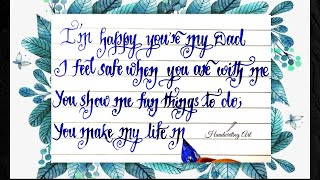 I'm happy you're my Dad
I feel safe when you are with me
You show me fun things to do;
You make my life in
Handwriting Art